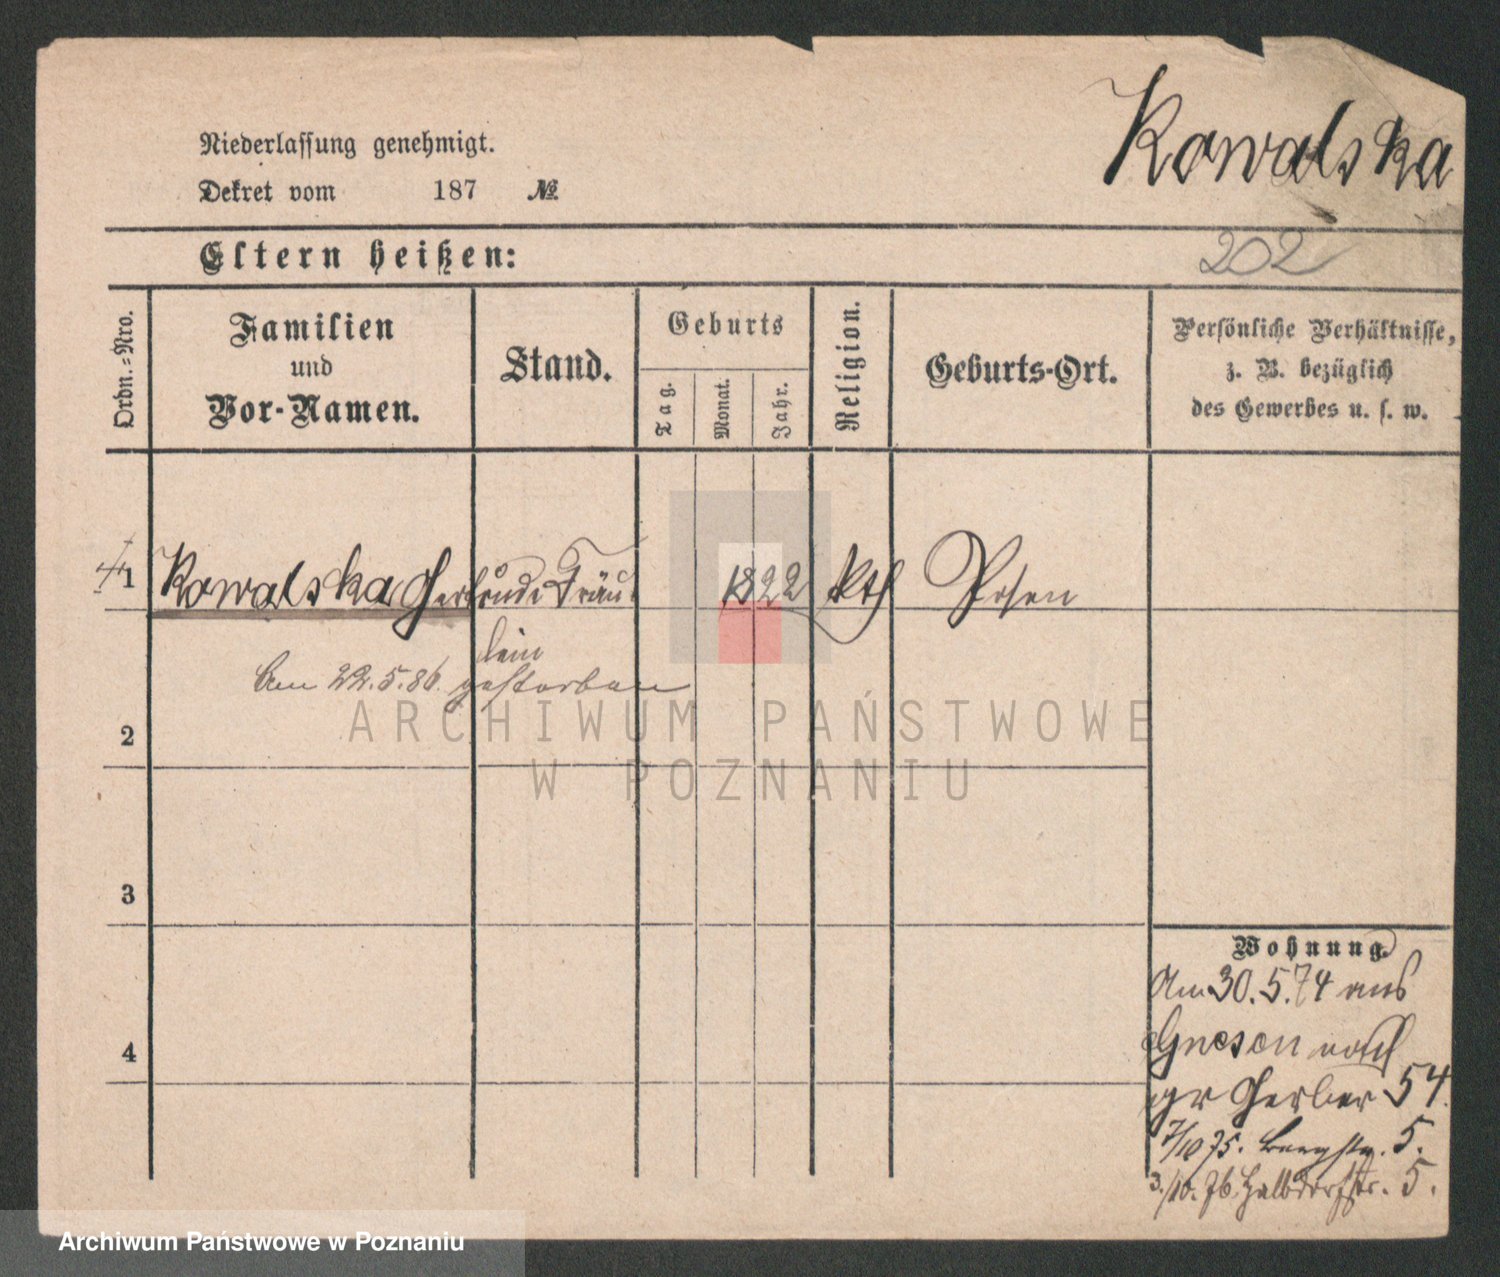 Kowalska
Niederlassung genehmigt.
Dekret vom 187 №
Eltern heißen:
202
Ordn.-Nro.
Familien
und
Vor-Namen.
Stand.
Geburts
Tag.
Monat.
Jahr.
Religion.
Geburts-Ort.
Persönliche Verhältnisse,
z. B. bezüglich
des Gewerbes u. s. w.
1 Kowalska Gertrude Fräu 1822 kth Posen
lein
Am 22.5.86. gestorben
2
3
4
Wohnung.
Am 30.5.74 aus
Gnesen nach
gr Gerber 54.
7/10 75. Bergstr. 5.
3./10. 76. Halbdorfstr. 5.
ARCHIWUM PAŃSTWOWE
W POZNANIU
Archiwum Państwowe w Poznaniu